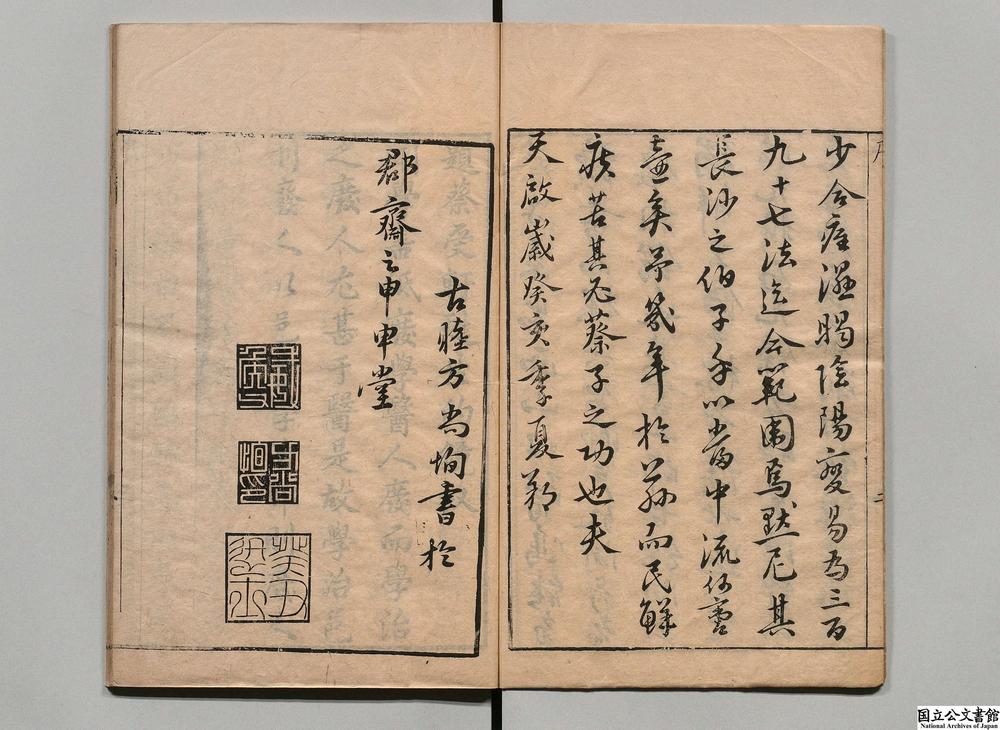 少合痙濕暍陰陽變易為三百
九十七法迄今範圍焉默尼其
長沙之伯子乎以當中流
壺矣予幾年於茲而民鮮
疾苦其 蔡子之功也夫
天啟歲癸亥季夏
古睦方尚恂書於
郡齋之申申堂
国立公文書館
National Archives of Japan